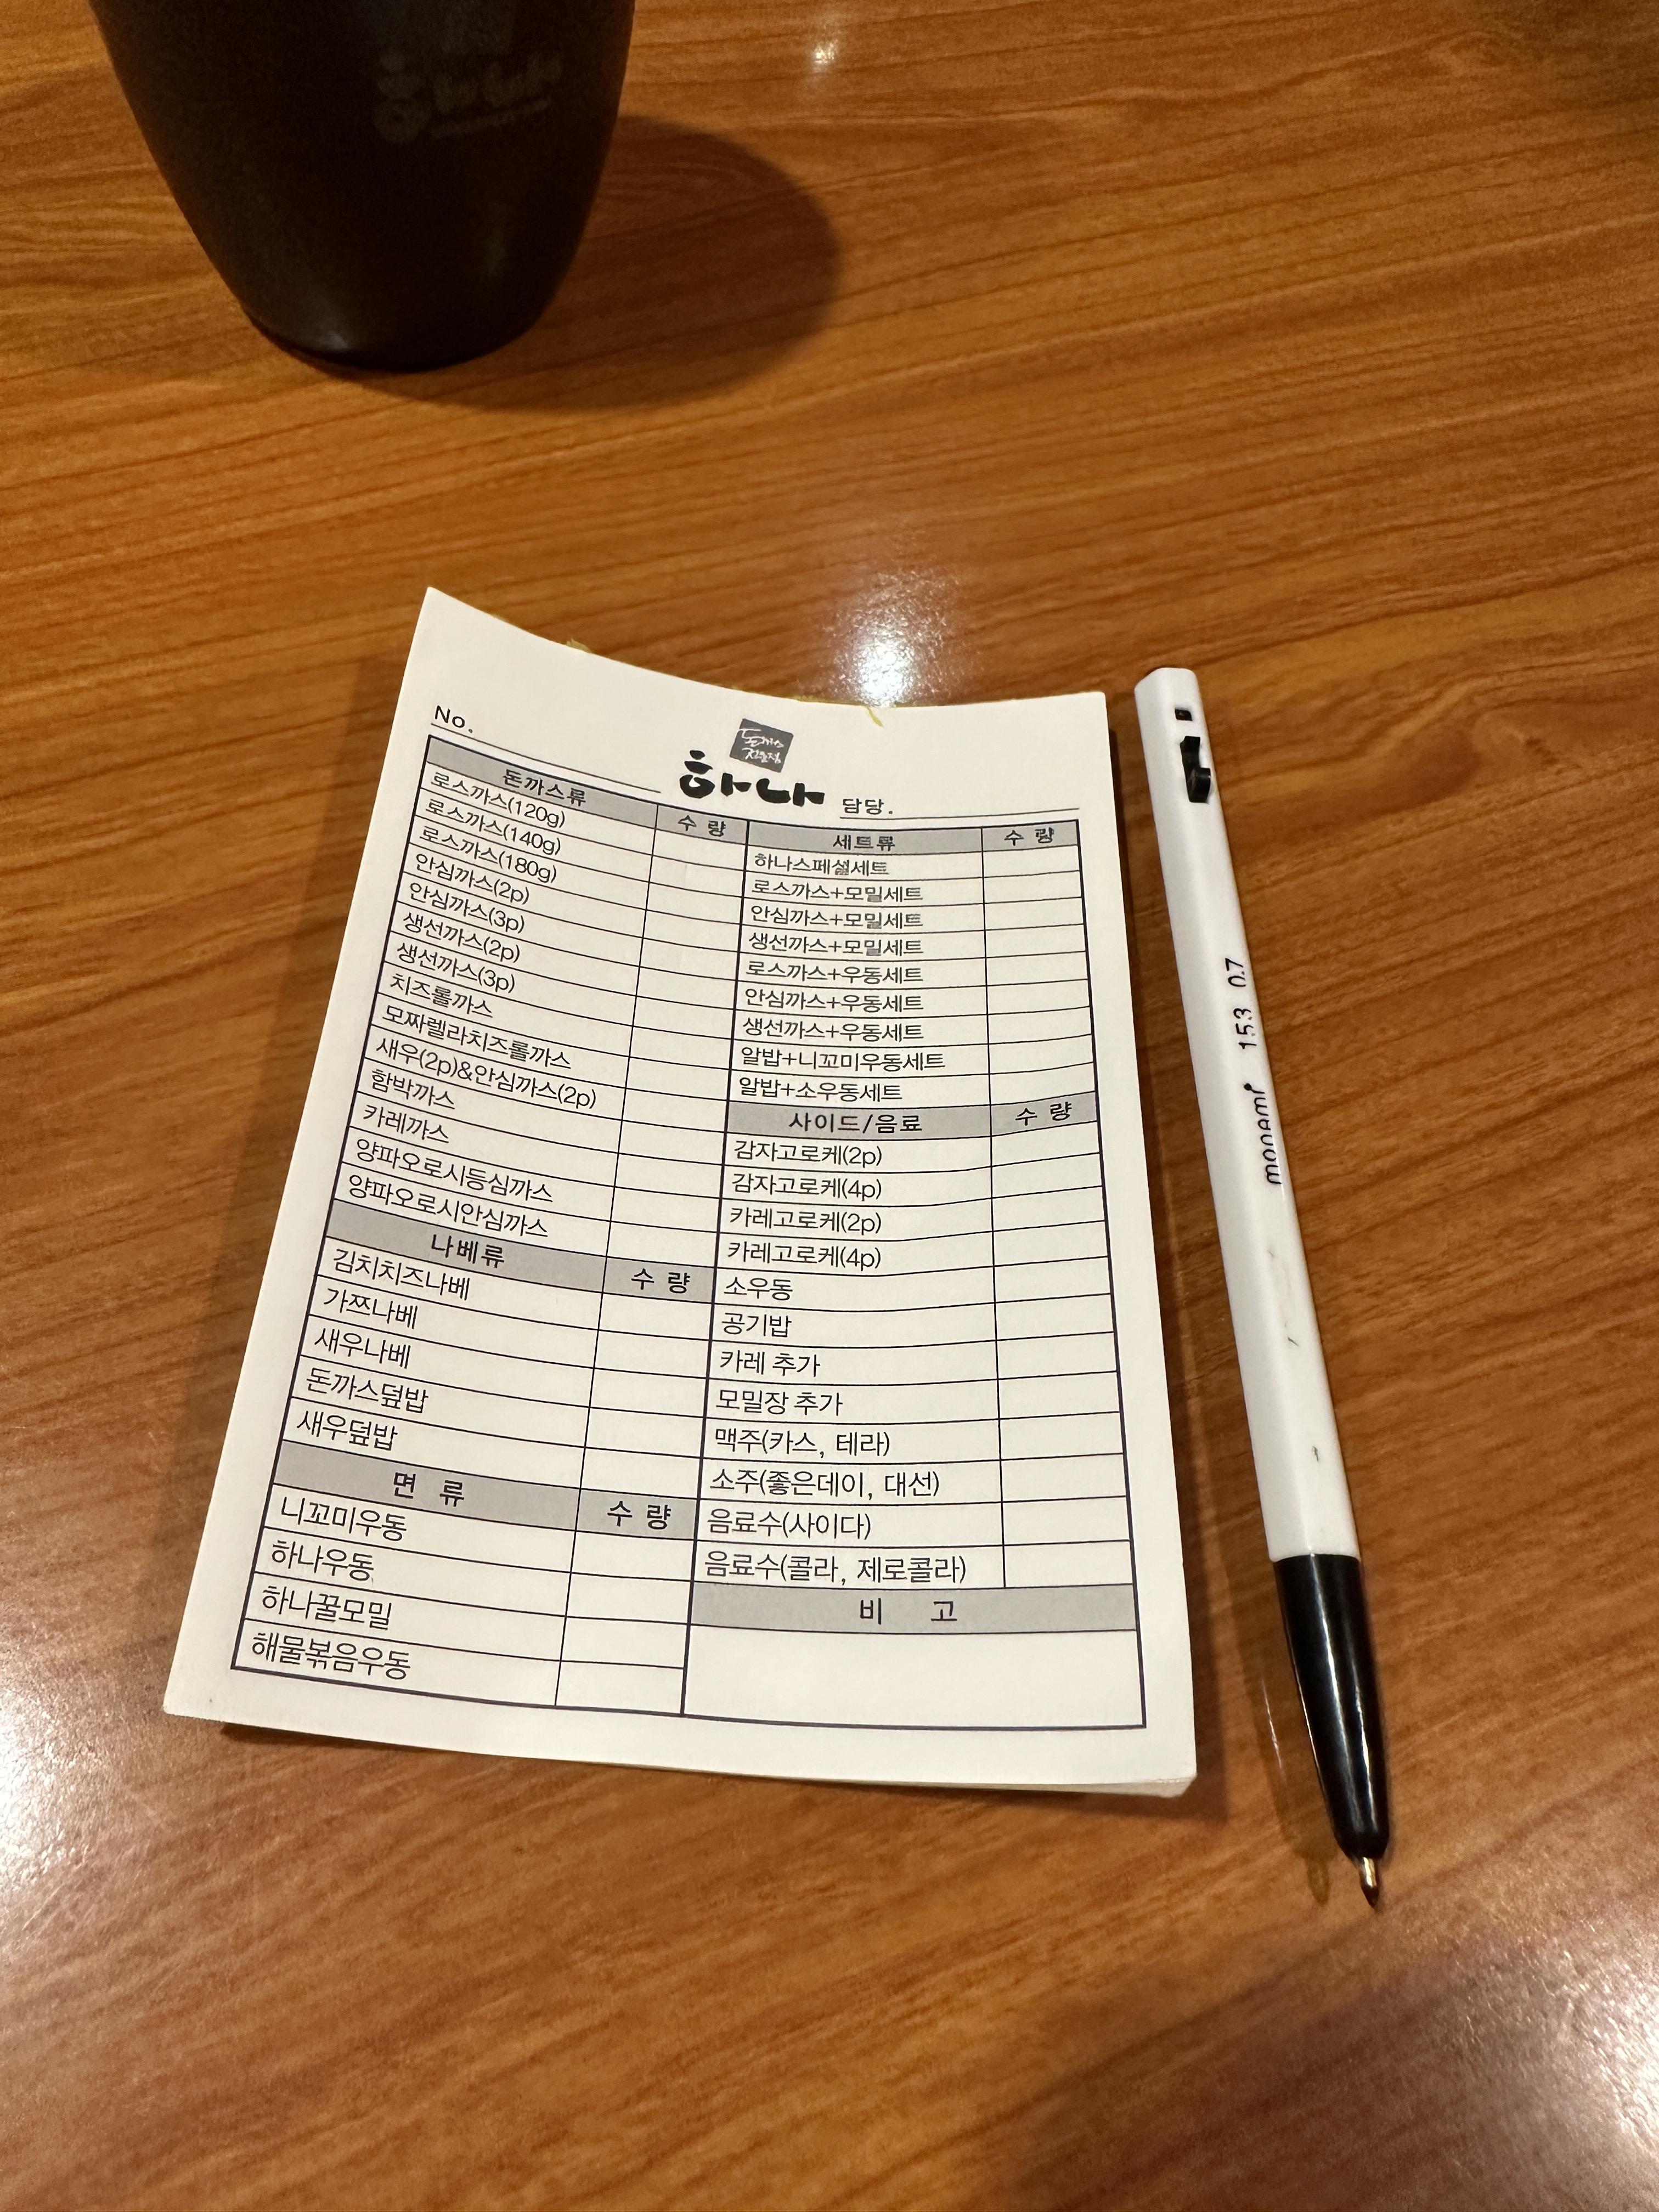 No.
돈까스
전문점
하나
담당.
돈까스류 수 량
로스까스(120g)
로스까스(140g)
로스까스(180g)
안심까스(2p)
안심까스(3p)
생선까스(2p)
생선까스(3p)
치즈롤까스
모짜렐라치즈롤까스
새우(2p)&안심까스(2p)
함박까스
카레까스
양파오로시등심까스
양파오로시안심까스
나베류 수 량
김치치즈나베
가쯔나베
새우나베
돈까스덮밥
새우덮밥
면 류 수 량
니꼬미우동
하나우동
하나꿀모밀
해물볶음우동
세트류 수 량
하나스페셜세트
로스까스+모밀세트
안심까스+모밀세트
생선까스+모밀세트
로스까스+우동세트
안심까스+우동세트
생선까스+우동세트
알밥+니꼬미우동세트
알밥+소우동세트
사이드/음료 수 량
감자고로케(2p)
감자고로케(4p)
카레고로케(2p)
카레고로케(4p)
소우동
공기밥
카레 추가
모밀장 추가
맥주(카스, 테라)
소주(좋은데이, 대선)
음료수(사이다)
음료수(콜라, 제로콜라)
비 고
monami 153 0.7